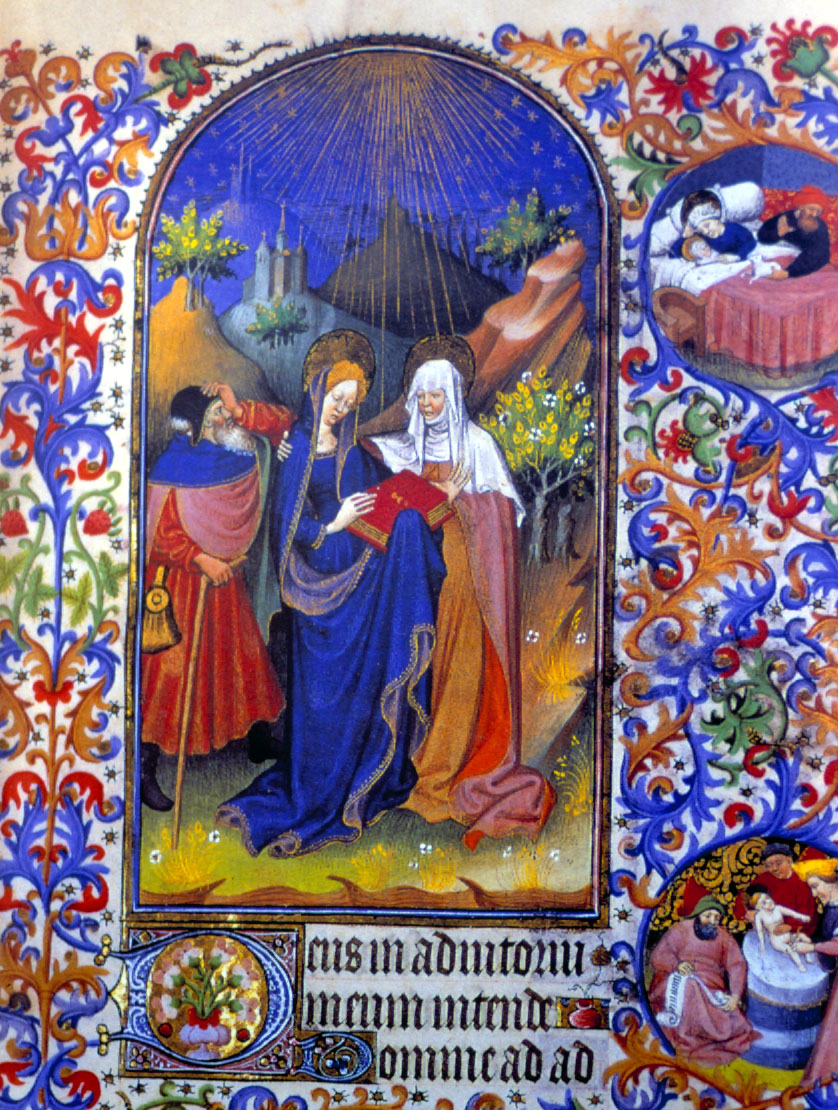 Deus in adiutoriu
meum intende
Domine ad ad